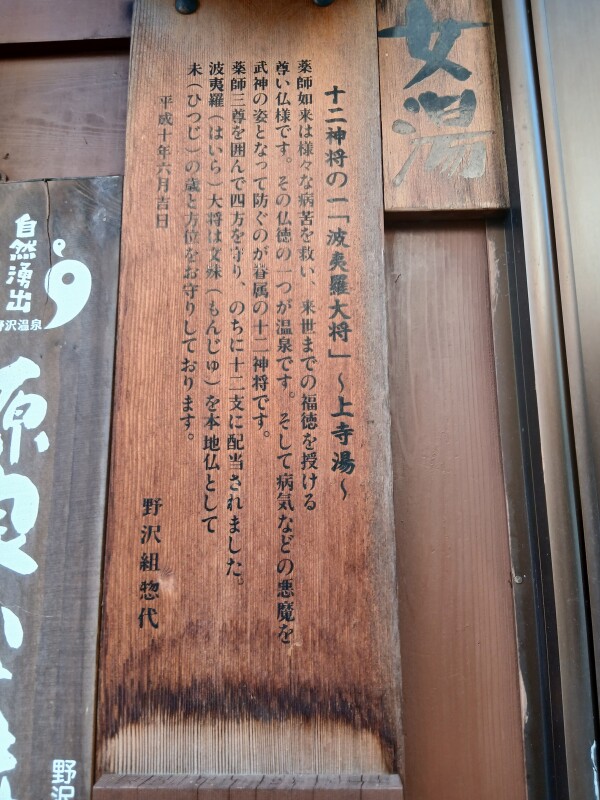 女湯
十二神将の一「波夷羅大将」〜上寺湯〜
薬師如来は様々な病苦を救い、来世までの福徳を授ける
尊い仏様です。その仏徳の一つが温泉です。そして病気などの悪魔を
武神の姿となって防ぐのが眷属の十二神将です。
薬師三尊を囲んで四方を守り、のちに十二支に配当されました。
波夷羅(はいら)大将は文殊(もんじゅ)を本地仏として
未(ひつじ)の歳と方位をお守りしております。
平成十年六月吉日
野沢組惣代
自然湧出
野沢温泉
源泉か
野沢